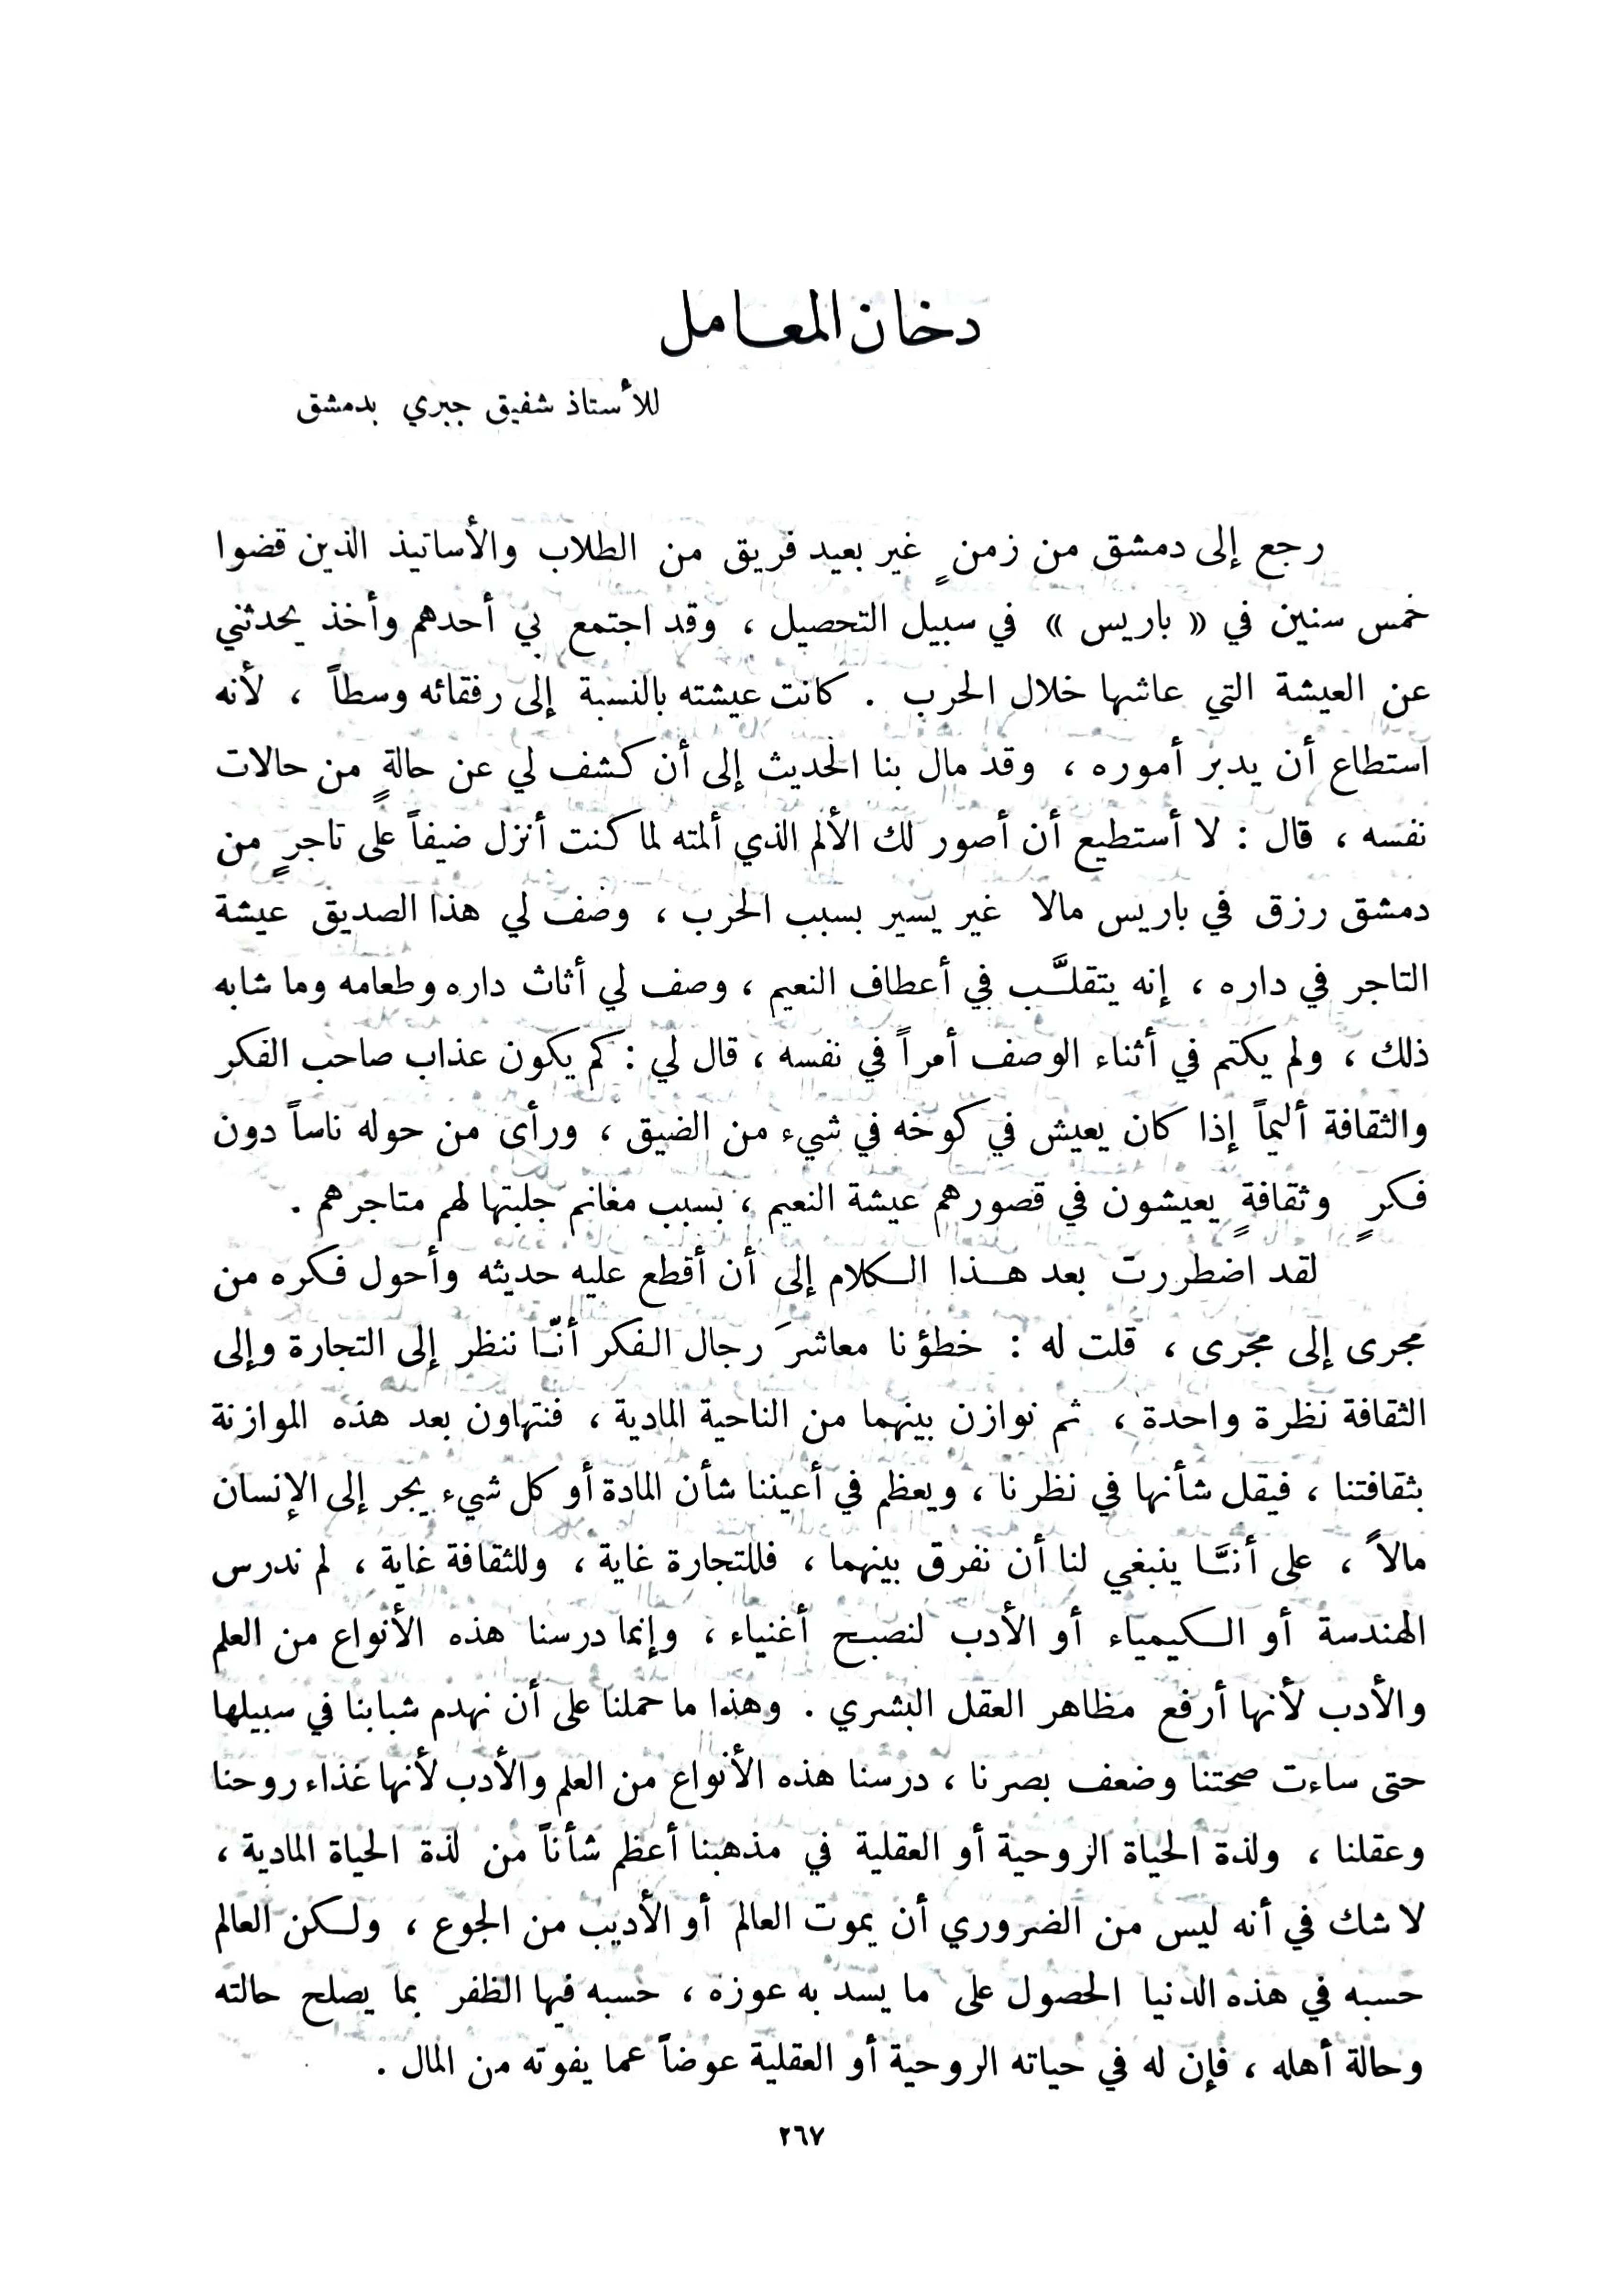 دخان المعامل
للأستاذ شفيق جبري بدمشق
رجع إلى دمشق من زمنٍ غير بعيد فريق من الطلاب والأساتيذ الذين قضوا
خمس سنين في « باريس » في سبيل التحصيل ، وقد اجتمع بي أحدهم وأخذ يحدثني
عن العيشة التي عاشها خلال الحرب . كانت عيشته بالنسبة إلى رفقائه وسطاً ، لأنه
استطاع أن يدبر أموره ، وقد مال بنا الحديث إلى أن كشف لي عن حالةٍ من حالات
نفسه ، قال : لا أستطيع أن أصور لك الألم الذي ألمته لما كنت أنزل ضيفاً على تاجرٍ من
دمشق رزق في باريس مالا غير يسير بسبب الحرب ، وصف لي هذا الصديق عيشة
التاجر في داره ، إنه يتقلَّب في أعطاف النعيم ، وصف لي أثاث داره وطعامه وما شابه
ذلك ، ولم يكتم في أثناء الوصف أمراً في نفسه ، قال لي : كم يكون عذاب صاحب الفكر
والثقافة أليماً إذا كان يعيش في كوخه في شيء من الضيق ، ورأى من حوله ناساً دون
فكرٍ وثقافةٍ يعيشون في قصورهم عيشة النعيم ، بسبب مغانم جلبتها لهم متاجرهم .
لقد اضطررت بعد هذا الكلام إلى أن أقطع عليه حديثه وأحول فكره من
مجرى إلى مجرى ، قلت له : خطؤنا معاشرَ رجال الفكر أنّا ننظر إلى التجارة وإلى
الثقافة نظرة واحدة ، ثم نوازن بينهما من الناحية المادية ، فنتهاون بعد هذه الموازنة
بثقافتنا ، فيقل شأنها في نظرنا ، ويعظم في أعيننا شأن المادة أو كل شيء يجر إلى الإنسان
مالاً ، على أنَّا ينبغي لنا أن نفرق بينهما ، فللتجارة غاية ، وللثقافة غاية ، لم ندرس
الهندسة أو الكيمياء أو الأدب لنصبح أغنياء ، وإنما درسنا هذه الأنواع من العلم
والأدب لأنها أرفع مظاهر العقل البشري . وهذا ما حملنا على أن نهدم شبابنا في سبيلها
حتى ساءت صحتنا وضعف بصرنا ، درسنا هذه الأنواع من العلم والأدب لأنها غذاء روحنا
وعقلنا ، ولذة الحياة الروحية أو العقلية في مذهبنا أعظم شأناً من لذة الحياة المادية ،
لا شك في أنه ليس من الضروري أن يموت العالم أو الأديب من الجوع ، ولكن العالم
حسبه في هذه الدنيا الحصول على ما يسد به عوزه ، حسبه فيها الظفر بما يصلح حالته
وحالة أهله ، فإن له في حياته الروحية أو العقلية عوضاً عما يفوته من المال .
٢٦٧